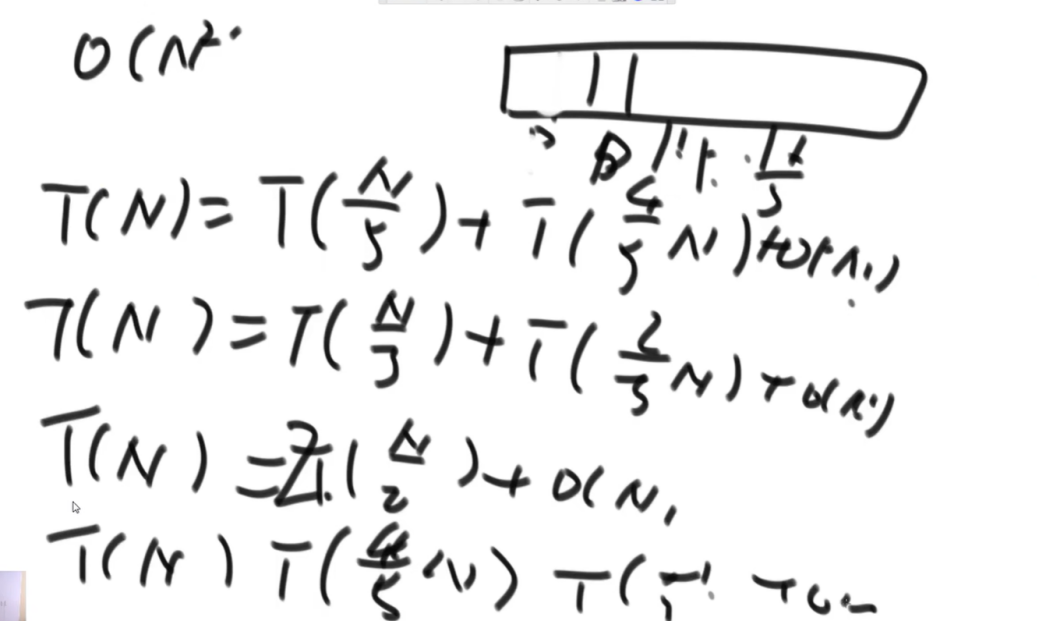 O(N²
T(N) = T(N/5) + T(4/5 N) + O(N)
T(N) = T(N/3) + T(2/3 N) + O(N)
T(N) = 2T(N/2) + O(N)
T(N) T(4/5 N) T(